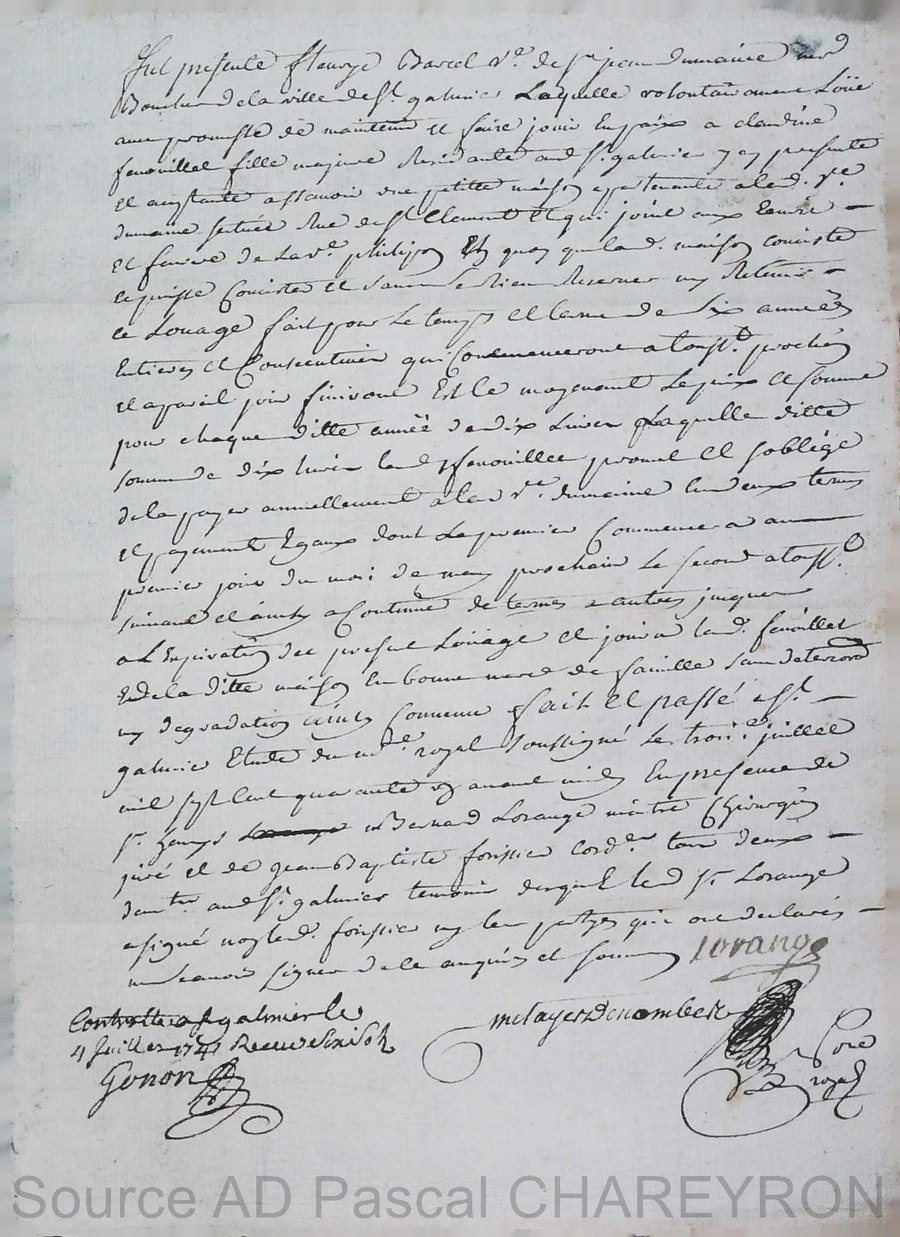 Fut presente fleurye Barcel v.e de s.r jean dumaine m.d
Boucher de la ville de s.t galmier Laquelle volontairement Loüe
avec promesse de maintenir et faire jouir En paix a claudine
fenouillet fille majeure Residante aud s.t galmier y en presente
et acceptante assavoir une petitte maison apartenante a lad. v.e
dumaine scituée Rue de s.t Clement Et qui joint aux
Et de La v.e philipon Et quoy que lad. maison conciste
et puisse Concister et sans se Rien Reserver ny Retenir
ce Louage fait pour Le temps et terme de six années
Entieres et Consecutives qui Commenceront a tousst. prochain
et a pareil jour finiront Est le moyenant Le prix et somme
pour chaque ditte année de dix Livres Laquelle ditte
somme de dix livres lad. fenouillet promet et soblige
de la payer annuellement a lad v.e dumaine En deux termes
et payements Egaux dont Le premier Commencera au
premier jour du mois de may prochain Le second a tousst.
suivant et ainsy a Continuer de termes a autres jusques
a L'Expiration du present Loüage et jouira lad. fenoillet
de la ditte maison En bonne mere de famille sans deterioration
ny degradation ainsy Convenu fait et passé a s.t
galmier Etude du no.re royal soussigné Le trois.e juillet
mil sept Cent quarante avant midy En presence de
s.r Bernard Lorange maitre Chirurgien
juré et de jean Baptiste forissier cord.er tous deux
dud s.t galmier temoins desquels led s.r Lorange
a signé non led. forissier ny les partyes qui ont declarés
ne scavoir signer de ce enquis et sommés Lorange
Controllé a s.t galmier le
4 Juillet 174 Receu six sols
Gonon
metayer Denombret
No.re
royal
Source AD Pascal CHAREYRON